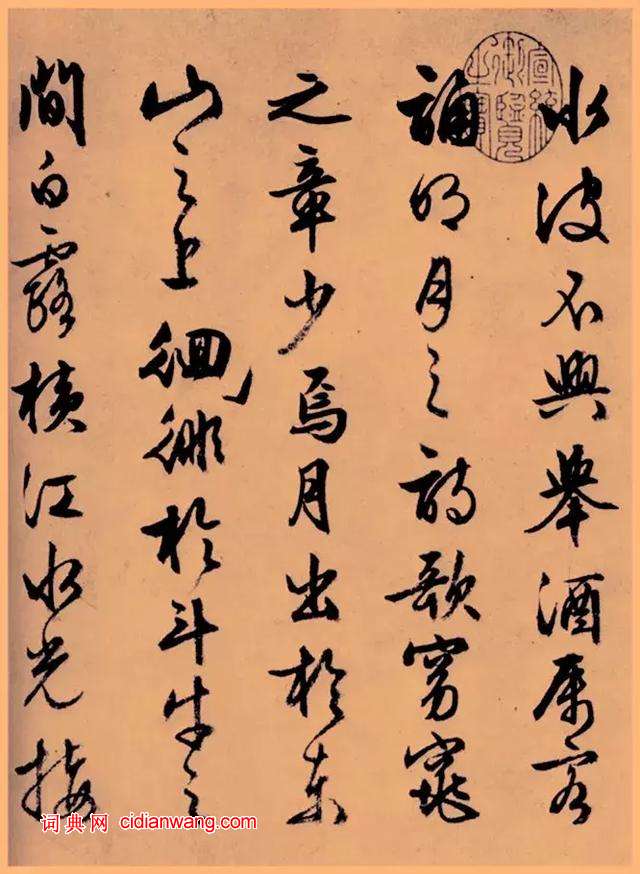 水波不興舉酒属客
誦明月之詩歌窈窕
之章少焉月出於东
山之上徊徘於斗牛之
間白露横江水光接
宣統御覽之寶
词典网 cidianwang.com